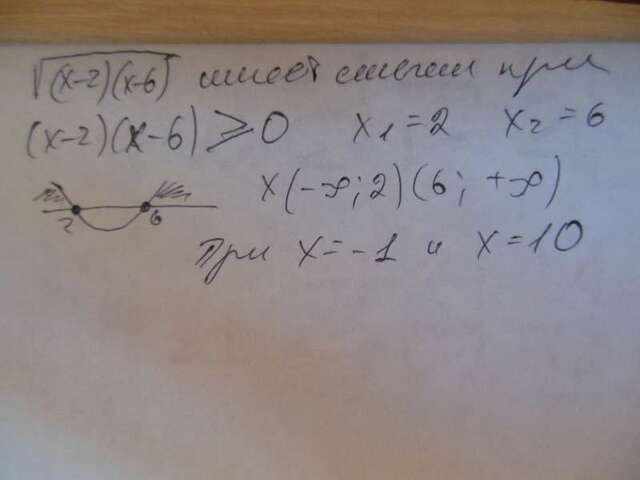 √(x-2)(x-6) имеет смысл при
(x-2)(x-6) ⩾ 0 x₁=2 x₂=6
2 6 x(-∞; 2)(6; +∞)
При x=-1 и x=10